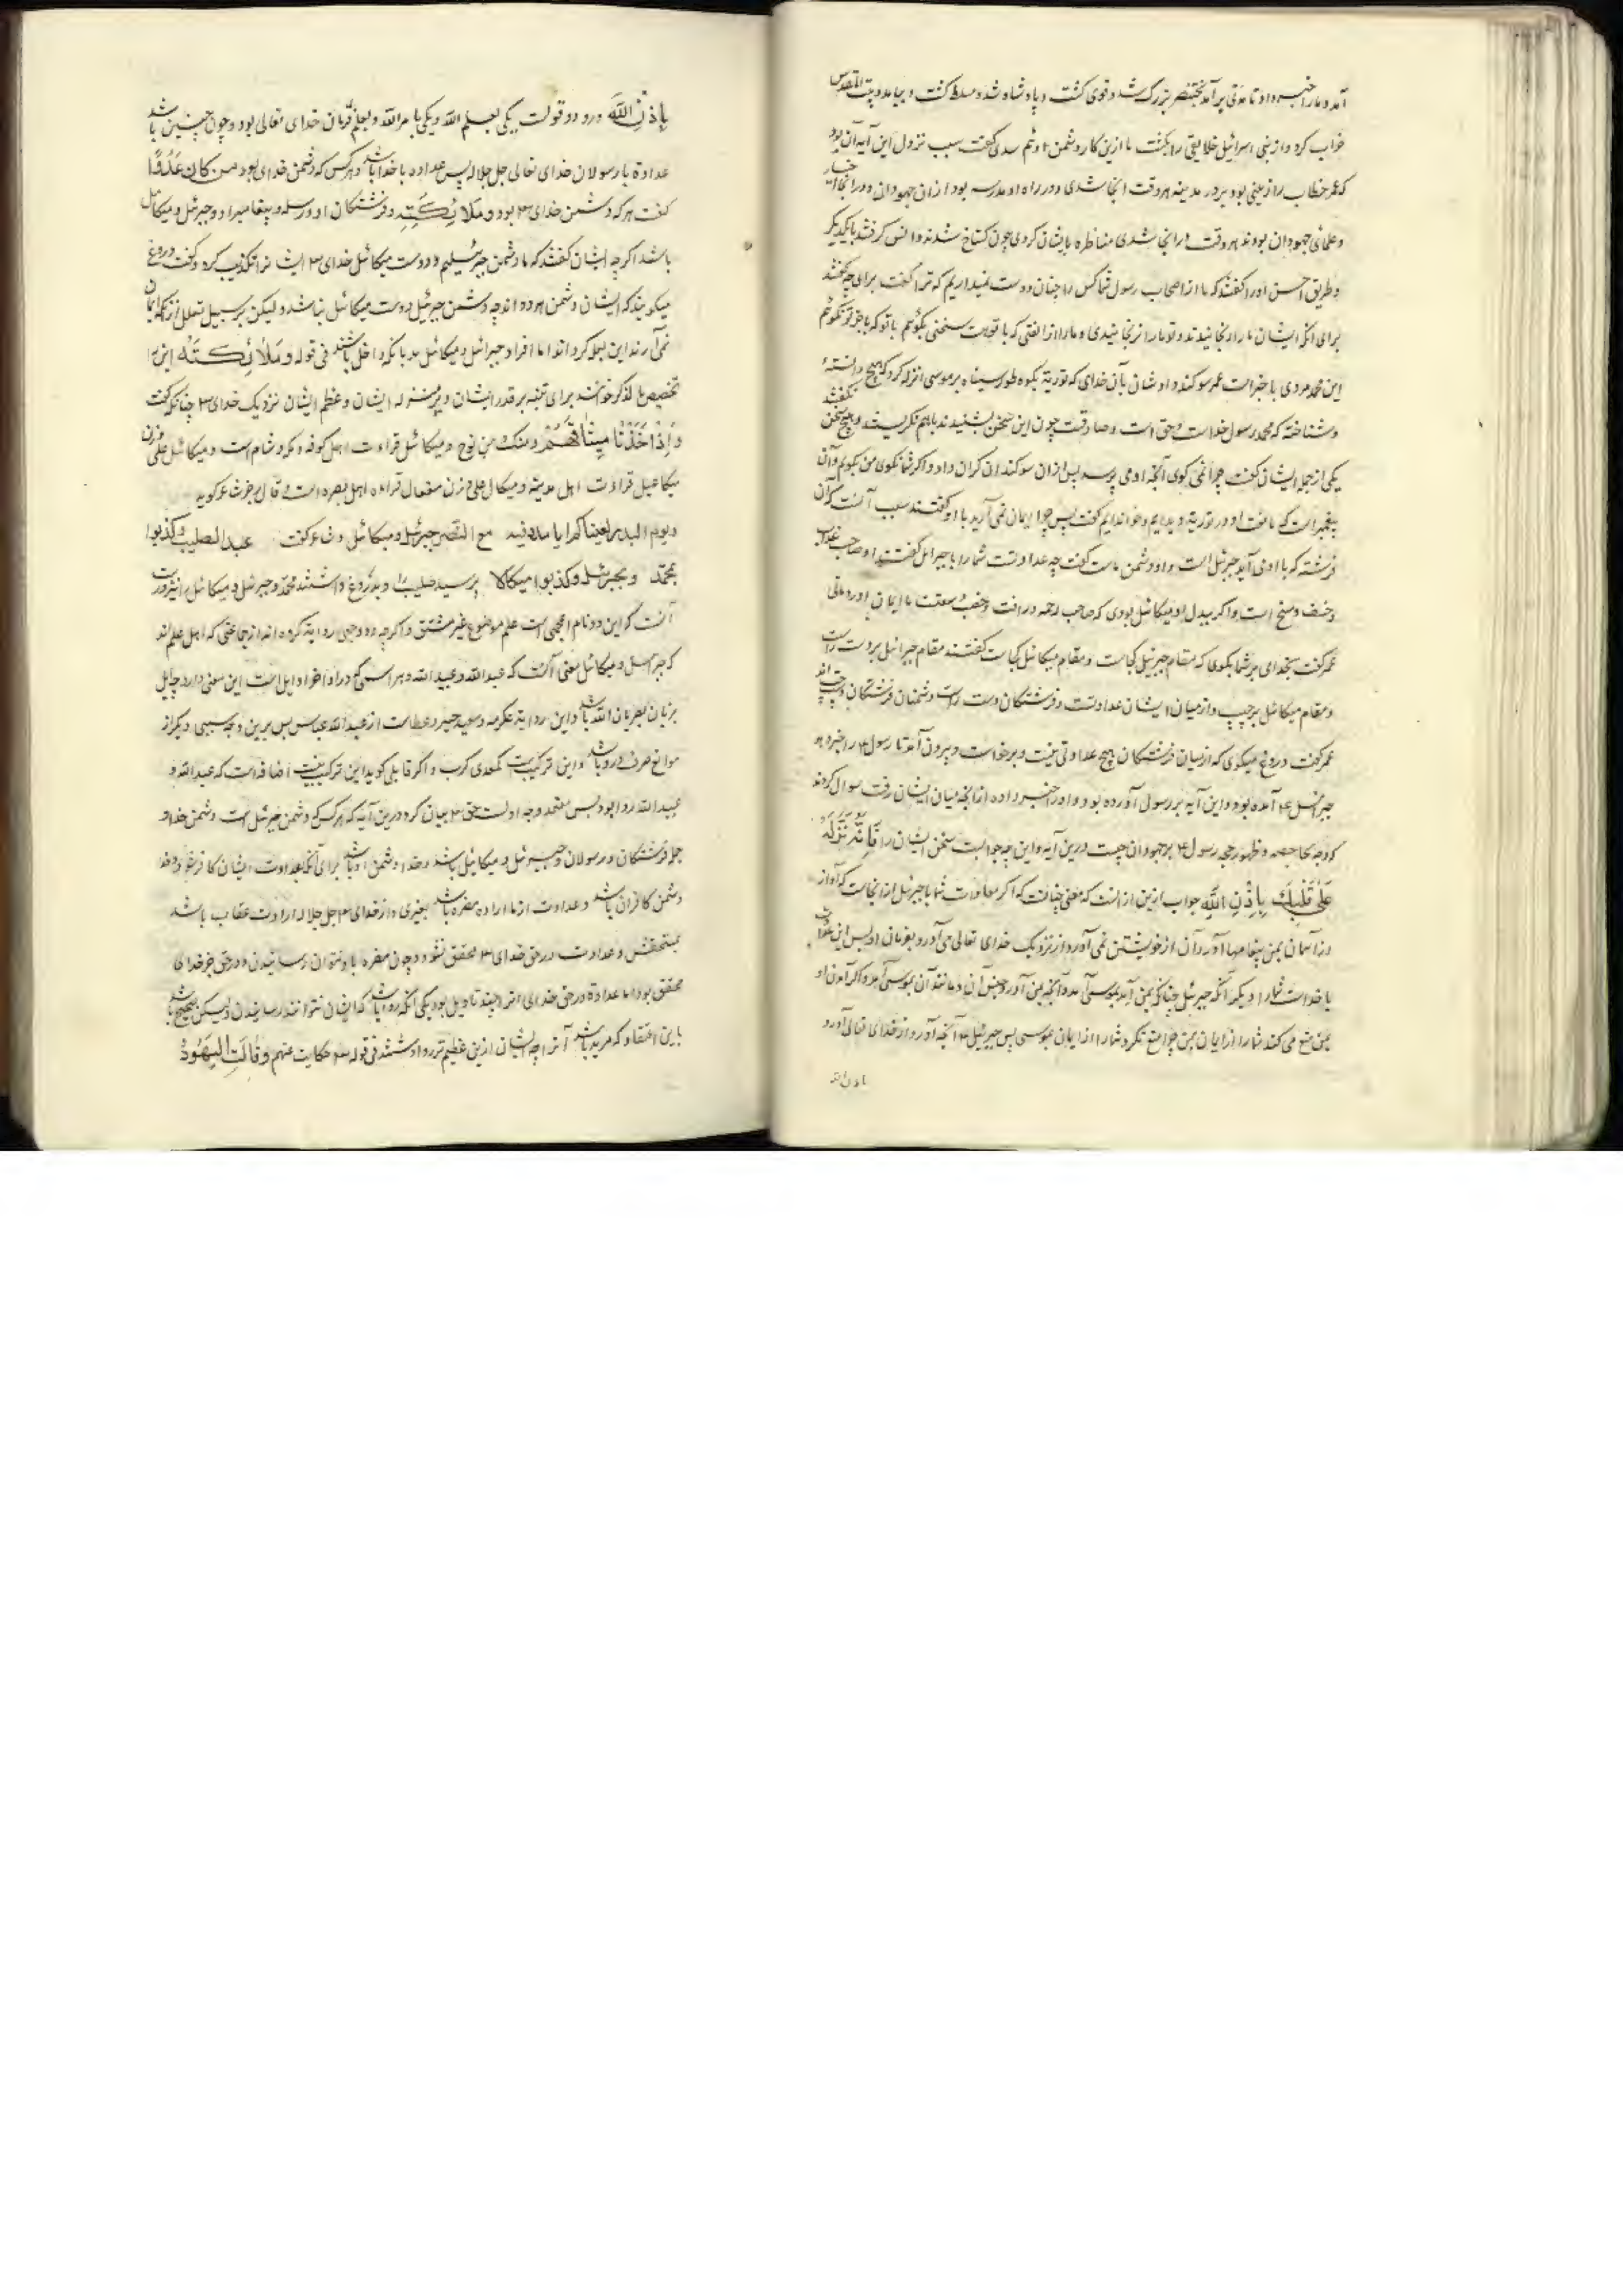 آمد و ما را خبر داد تا مدتی برآمد بختنصر بزرگ شد و قوی گشت و پادشاه شد و مسلط گشت و بیامد و بیت المقدس
خراب کرد و از بنی اسرائیل خلایقی را بکشت ما ازین کار دشمن اوئیم سدی گفت سبب نزول این آیه آن بود
که عمر خطاب را زمینی بود بر در مدینه هر وقت آنجا شدی و در راه او مدرسه بود ازان جهودان و در آنجا احبار
و علمای جهودان بودند هر وقت در آنجا شدی مناظره با ایشان کردی چون گستاخ شدند و انس گرفتند با یکدیگر
و طریق احسن او را گفتند که ما از اصحاب رسول شما کس را چنان دوست نمیداریم که ترا گفت برای چه گفتند
برای آنکه ایشان ما را رنجانیدند و تو ما را نرنجانیدی و ما را از الفتی که با تو هست سخنی بگوئیم با تو که با جز تو نگوئیم
این محمد مردی با خبر است عمر سوگند داد شان بآن خدای که توریة بکوه طور سیناه بر موسی انزله کرد که هیچ دانسته
و شناخته که محمد رسول خداست و حق است و صادقست چون این سخن بشنیدند باهم نگریستند و هیچ سخن نگفتند
یکی از جمله ایشان گفت چرا نمی گوی آنچه او می پرسد پس ازان سوگندان گران داد و اگر شما نگوی من بگویم و آن
پیغمبر است که ما نعت او در توریة دیدیم و خواندیم گفت پس چرا ایمان نمی آرید با او گفتند سبب آنست که آن
فرشته که با او می آید جبرئیل است و او دشمن ماست گفت چه عداوتست شما را با جبرائیل گفتند او صاحب عذاب
و خسف و مسخ است و اگر بدل او میکائیل بودی که صاحب رحمه و رافت و خصب و سعتست ما ایمان آوردمانی
عمر گفت بخدای بر شما بگوی که مقام جبرئیل کجاست و مقام میکائیل کجاست گفتند مقام جبرائیل بر دست راست
و مقام میکائیل بر چپ و از میان ایشان عداوتست و فرشتگان دست راست دشمنان فرشتگان دست چپ اند
عمر گفت دروغ میگوی که از میان فرشتگان هیچ عداوتی نیست و برخاست و بیرون آمد تا رسول ۴ را خبر دهد
جبرائیل ۴ آمده بود و این آیه بر رسول آورده بود و او را خبر داده از آنچه میان ایشان رفت سوال کردند
که وجه محاجه و ظهور حجه رسول ۴ بر جهودان چیست درین آیه و این چه جوابست سخن ایشان را فَإِنَّهُ نَزَّلَهُ
عَلَىٰ قَلْبِكَ بِإِذْنِ اللَّهِ جواب ازین آنست که معنی چنانست که اگر معادات شما با جبرئیل از آنجاست که او از
آسمان بمن پیغامها آورد آن از خویشتن نمی آورد از نزدیک خدای تعالی می آورد و بفرمان او پس این عداوت
با خداست شما را و دیگر آنکه جبرئیل چنانکه بمن آید بموسی آمد و آنچه بمن آورد جنس آن و مانند آن بموسی آمد و اگر آمدن او
بمن منع می کند شما را از ایمان بمن چرا منع نکرد شما را از ایمان بموسی پس جبرئیل ۴ آنچه آورد از خدای تعالی آورد
باذن الله
بِإِذْنِ اللَّهِ و درو دو قولست یکی بعلم الله و یکی بامر الله و بعلم و فرمان خدای تعالی بود و چون چنین باشد
عداوة با رسولان خدای تعالی جل جلاله پس عداوه با خدا باشد و هرکس که دشمن خدای بود من كان عَدُوًّا
گفت هرکه دشمن خدای ۳ بود و مَلَائِكَتِهِ و فرشتگان او و رسله و پیغامبر او و جبرئیل و میکائیل
باشد اگرچه ایشان گفتند که ما دشمن جبرئیلیم و دوست میکائیل خدای ۳ ایشانرا تکذیب کرد و گفت دروغ
میگویند که ایشان دشمن هر دو اند چه دشمن جبرئیل دوست میکائیل نباشد ولیکن بر سبیل تعلل از آنکه ایمان
نمی آرند این بهانه کرده اند اما افراد جبرائیل و میکائیل بعد بآنکه داخل باشند فی قوله و مَلَائِكَتِهِ این را
تخصیص بالذکر خوانند برای تنبیه بر قدر ایشان و منزله ایشان و عظم ایشان نزدیک خدای ۳ چنانکه گفت
وَإِذْ أَخَذْنَا مِيثَاقَهُمْ و منک و من نوح و میکائیل قراءت اهل کوفه و مکه و شام است و میکائل علی وزن
میکاعیل قراءت اهل مدینه و میکال علی وزن مفعال قراءه اهل بصره است
و یوم البدر لقیناکم لنا مدد فیه مع النصر جبرئیل و میکائیل و شاعر گفت عبدالصلیب و کذبوا
بمحمد و بجبرئیل و کذبوا میکالا پرسید صلیب را و بدروغ داشتند محمد و جبرئیل و میکائیل را
آنست که این دو نام اعجمی است علم موضوع غیر مشتق و اگرچه دو وجهی روایت کرده اند از جماعتی که اهل علم اند
که جبرائیل و میکائیل معنی آنست که عبدالله و عبیدالله و هر اسمی که در اواخر او ایل است این معنی دارد چه ایل
بزبان عبریان الله باشد و این روایة عکرمه و سعید جبیر و عطاست از عبدالله عباس پس برین وجه سببی دیگر از
موانع صرف درو باشد و این ترکیبست کمعدی کرب و اگر قایلی گوید این ترکیب نیست اضافه است که عبدالله و
عبیدالله رد ابود پس معتمد وجه اولست حق ۳ بیان کرد درین آیه که هرکس که دشمن جبرئیل است دشمن خدا و
جمله فرشتگان و رسولان و جبرئیل و میکائیل باشد و خدا دشمن او باشد برای آنکه بعداوت ایشان کافر شد و خدا
دشمن کافران باشد و عداوت از ما اراده مضره باشد بغیری و از خدای ۳ جل جلاله ارادت عقاب باشد
بمستحقش و عداوت در حق خدای ۳ محقق نشود چون مضره با و نتوان رسانیدن و در حق جز خدای
محقق بود اما عداوة در حق خدای انرا چند تاویل بود یکی آنکه روا باشد که ایشان نتوانند رسانیدن ولیکن
باین اعتقاد که مرید باشد آنرا چه ایشان ازین عظیم تر روا داشتند فی قوله ۳ حکایت عنهم وَقَالَتِ الْيَهُودُ